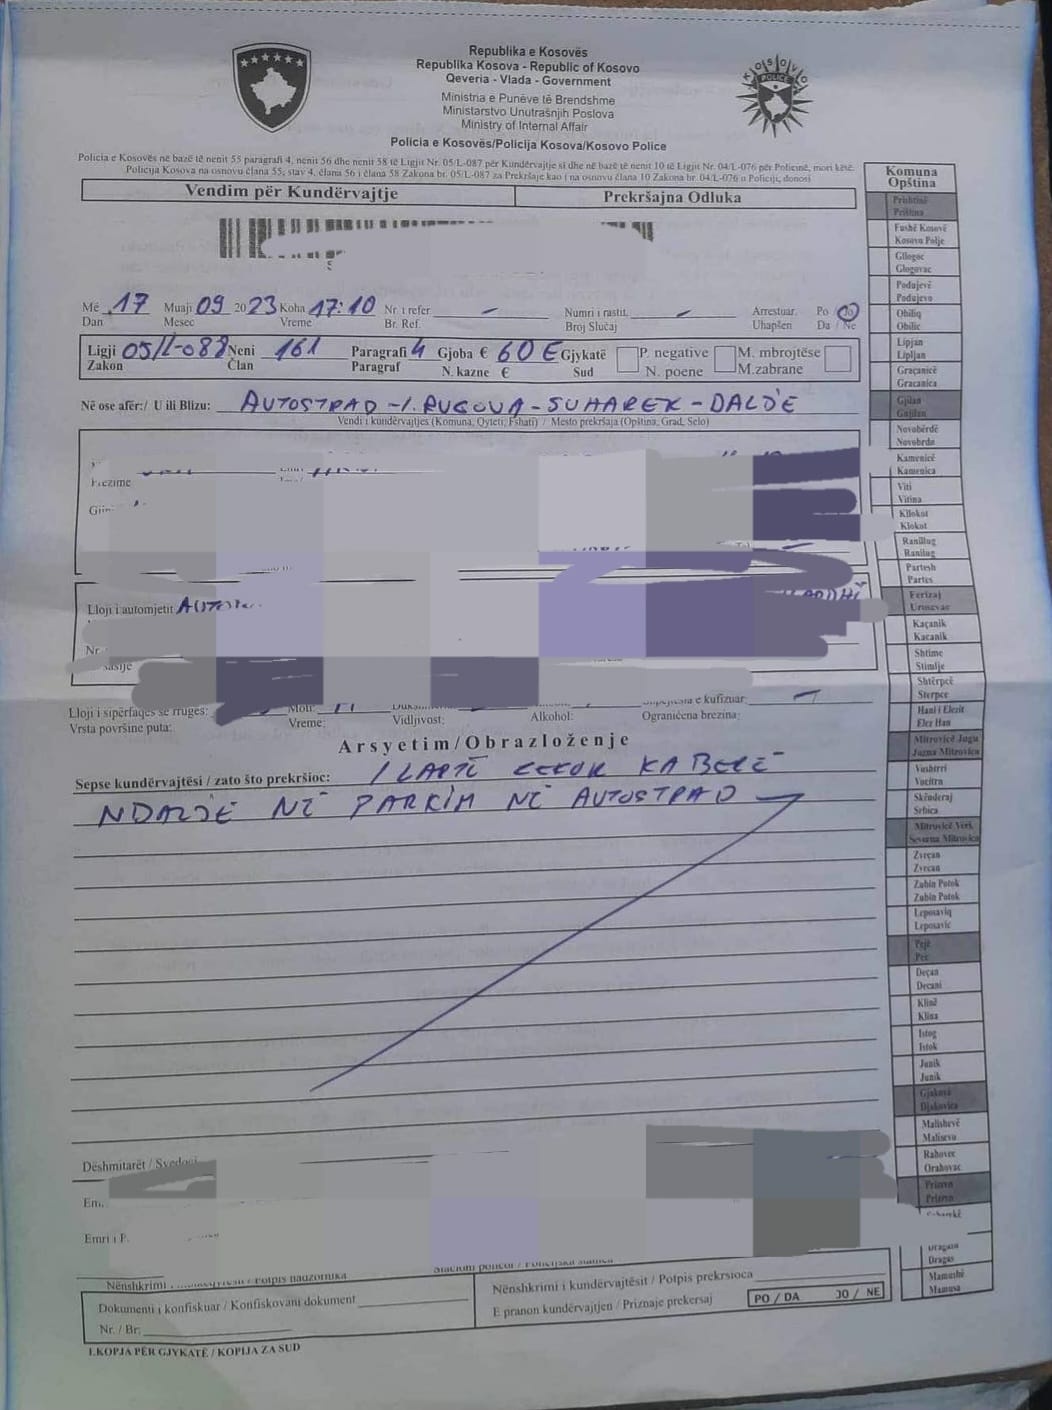 Republika e Kosovës
Republika Kosova - Republic of Kosovo
Qeveria - Vlada - Government
Ministria e Punëve të Brendshme
Ministarstvo Unutrašnjih Poslova
Ministry of Internal Affair
Policia e Kosovës/Policija Kosova/Kosovo Police
KOSOVO
POLICE
Policia e Kosovës në bazë të nenit 55 paragrafi 4, nenit 56 dhe nenit 58 të Ligjit Nr. 05/L-087 për Kundërvajtje si dhe në bazë të nenit 10 të Ligjit Nr. 04/L-076 për Policinë, mori këtë:
Policija Kosova na osnovu člana 55, stav 4, člana 56 i člana 58 Zakona br. 05/L-087 za Prekršaje kao i na osnovu člana 10 Zakona br. 04/L-076 o Policiji, donosi
Vendim për Kundërvajtje Prekršajna Odluka
Më 17 Muaji 09 2023 Koha 17:10 Nr i refer. - Numri i rastit. - Arrestuar. Po Jo
Dan Mesec Vreme Br. Ref. Broj Slučaj Uhapšen Da / Ne
Ligji 05/L-088 Neni 161 Paragrafi 4 Gjoba € 60 € Gjykatë P. negative M. mbrojtëse
Zakon Član Paragraf N. kazne € Sud N. poene M.zabrane
Në ose afër:/ U ili Blizu: AUTOSTRAD - I. RUGOVA - SUHAREK - DALJE
Vendi i kundërvajtjes (Komuna, Qyteti, Fshati) / Mesto prekršaja (Opština, Grad, Selo)
Lloji i automjetit
Nr
Lloji i sipërfaqes së rrugës: Moti:
Vrsta površine puta: Vreme: Vidljivost: Alkohol: Ograničena brezina:
Arsyetim/Obrazloženje
Sepse kundërvajtësi / zato što prekršioc: I LARTË CEKUR KA BERË
NDALJE NË PARKIM NË AUTOSTRAD
Dëshmitarët /
Em.
Emri i P.
Nënshkrimi
Nënshkrimi i kundërvajtësit / Potpis prekrsioca
Dokumenti i konfiskuar / Konfiskovani dokument
E pranon kundërvajtjen / Priznaje prekersaj PO / DA JO / NE
Nr. / Br:
I.KOPJA PËR GJYKATË / KOPIJA ZA SUD
Komuna
Opština
Prishtinë
Priština
Fushë Kosovë
Kosovo Polje
Gllogoc
Glogovac
Podujevë
Podujevo
Obiliq
Obilic
Lipjan
Lipljan
Graçanicë
Gracanica
Gjilan
Gnjilan
Novobërdë
Novobrdo
Kamenicë
Kamenica
Viti
Vitina
Kllokot
Klokot
Ranillug
Ranilug
Partesh
Partes
Ferizaj
Urosevac
Kaçanik
Kacanik
Shtime
Stimlje
Shtërpcë
Sterpce
Hani i Elezit
Elez Han
Mitrovicë Jugu
Juzna Mitrovica
Vushtrri
Vucitrn
Skënderaj
Srbica
Mitrovicë Veri.
Severna Mitrovica
Zveçan
Zvecan
Zubin Potok
Zubin Potok
Leposaviq
Leposavic
Pejë
Pec
Deçan
Decani
Klinë
Klina
Istog
Istok
Junik
Junik
Gjakovë
Djakovica
Malishevë
Malisevo
Rahovec
Orahovac
Prizren
Prizren
Dragash
Dragas
Mamushë
Mamusa